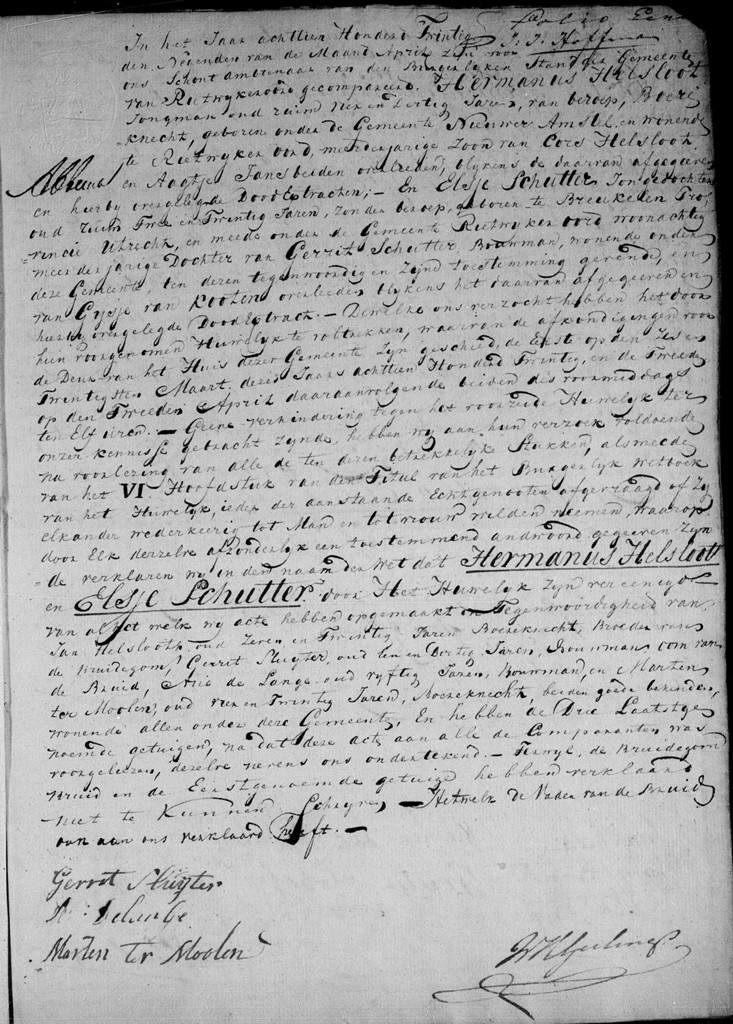 Folio Een
J. J. Hoffma
In het Jaar achttien Honderd Trintig
den Neuenden van de Maant April Zyn voor
ons Schout ambtenaar van den Burgerlyken Stand der Gemeente
van Rietwykeroord gecompareerd. Hermanus Helsloot
Jongman oud ruim vier en Dertig Jaren, van beroep, Boere
knecht, geboren onder de Gemeente Nieuwer Amstel en wonende
te Rietwyker oord, meerderjarige Zoon van Cors Helsloot
en Aagtje Jans beiden overleeden, blykens de daarvan afgegeven
en hierby overgelegde Dood Extracten; - En Elsje Schutter Jonge dochter
oud ruim Twee en Twintig Jaren, Zonder beroep, geboren te Breukelen Pro
vincie Utrecht, en meede onder de Gemeente Rietwyker oord woonachtig
meerderjarige Dochter van Gerrit Schutter, Bouwman, wonende onder
deze Gemeente, ten deren tegenwoordig en Zynd toestemming gevende, en
van Gysje van Kooten overleeden blykens het daarvan afgegeven en
hierby overgelegde Dood Extract. - Dewelke ons verzocht hebben het door
hun voorgenomen Huwelyk te voltrekken, waarvan de afkondigingen voor
de Deur van het Huis dezer Gemeente Zyn geschied, de eerste op den Zes en
Twintigsten Maart dezes Jaars achttien Honderd Trintig, en de Tweede
op den Tweeden April daaraanvolgende beiden des voormiddags
ten Elf uren. - Geene verhindering tegen het voorzeide Huwelyk ter
onzer kennisse gebracht zynde, hebben wy aan hun verzoek voldoende
na voorlezing van alle de ten deren betrekkelyke Stukken, alsmede
van het VI Hoofdstuk van den Titul van het Burgerlyk Wetboek
van het Huwelyk, ieder der aanstaande Echtgenooten afgevraagd of Zy
elkander wederkeerig tot Man en tot vrouw wilden neemen, waarop
door Elk derzelve afzonderlyk een toestemmend andwoord gegeeven Zyn
de verklaren wy in den naam der Wet dat Hermanus Helsloot
en Elsje Schutter door Het Huwelyk Zyn vereenigd
van al het welk wy acte hebben opgemaakt in Tegenwoordigheid van
Jan Helsloot, oud Zeven en Twintig Jaren Boereknecht, Broeder van
de Bruidegom, Gerrit Sluyter, oud Een en Dertig Jaren, Bouwman oom van
de Bruid, Arie de Lange oud vyftig Jaren, Bouwman, en Marten
ter Moolen, oud vier en Twintig Jaren, Boereknecht, beiden goede bekenden,
wonende allen onder deze Gemeente, En hebben de Drie Laatstge
noemde getuigen, na dat deze acte aan alle de Comparanten was
voorgeleezen, dezelve nevens ons ondertekend. - Terwyl, de Bruidegom
Bruid en de Eerstgenoemde getuige hebben verklaard
niet te Kunnen Schryve - Hetwelk de Vader van de Bruid
ook aan ons verklaard heeft. -
Gerret Sluyter
A delange
Marten Ter Moolen